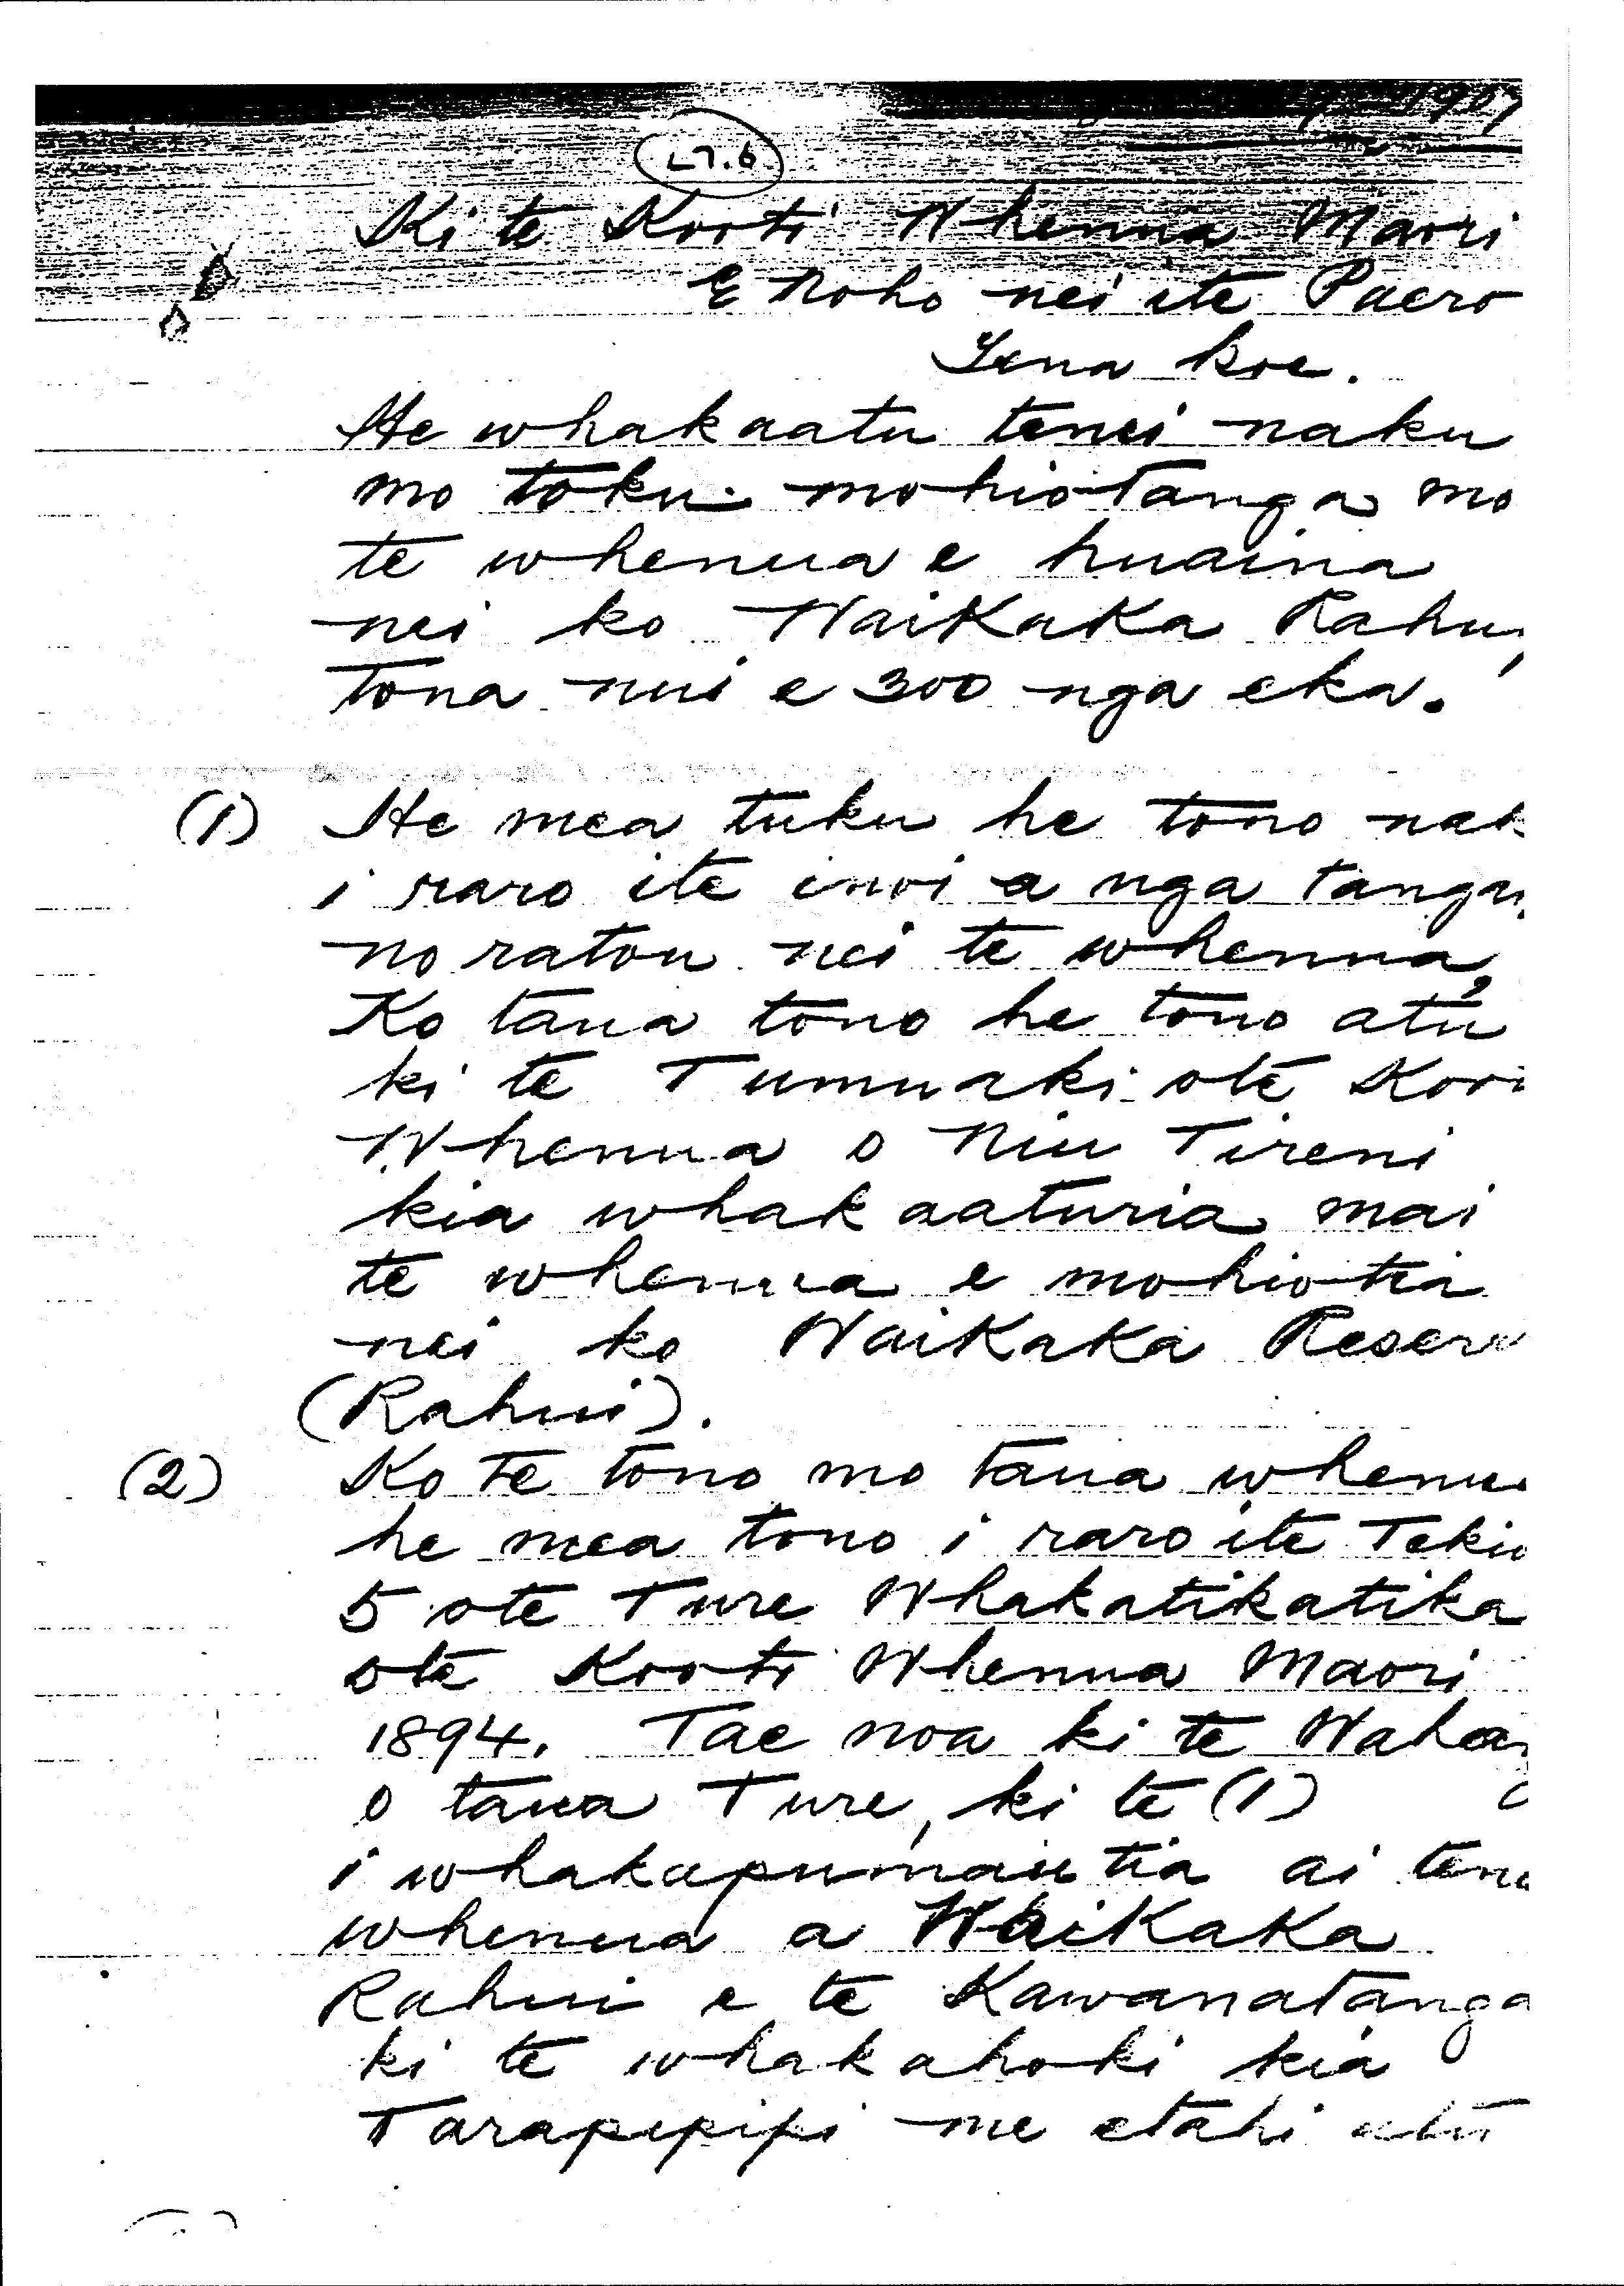 1907
L7.6
Ki te Kooti Whenua Maori
E Noho nei ite Paero
Tena koe.
He whakaatu tenei naku
mo toku mohiotanga mo
te whenua e huaina
nei ko Waikaka Rahui,
tona nui e 300 nga eka.
(1) He mea tuku he tono nak
i raro ite inoi a nga tanga
no ratou nei te whenua,
Ko taua tono he tono atu
ki te Tumuaki ote Koo
Whenua o Niu Tireni
kia whakaaturia mai
te whenua e mohiotia
nei ko Waikaka Reserv
(Rahui).
(2) Ko te tono mo taua whenua
he mea tono i raro ite Tekio
5 ote Ture Whakatikatika
ote Kooti Whenua Maori
1894. Tae noa ki te Waha
o taua Ture, ki te (1)
i whakapumautia ai tena
whenua a Waikaka
Rahui e te Kawanatanga
ki te whakahoki kia
Tarapipipi me etahi atu